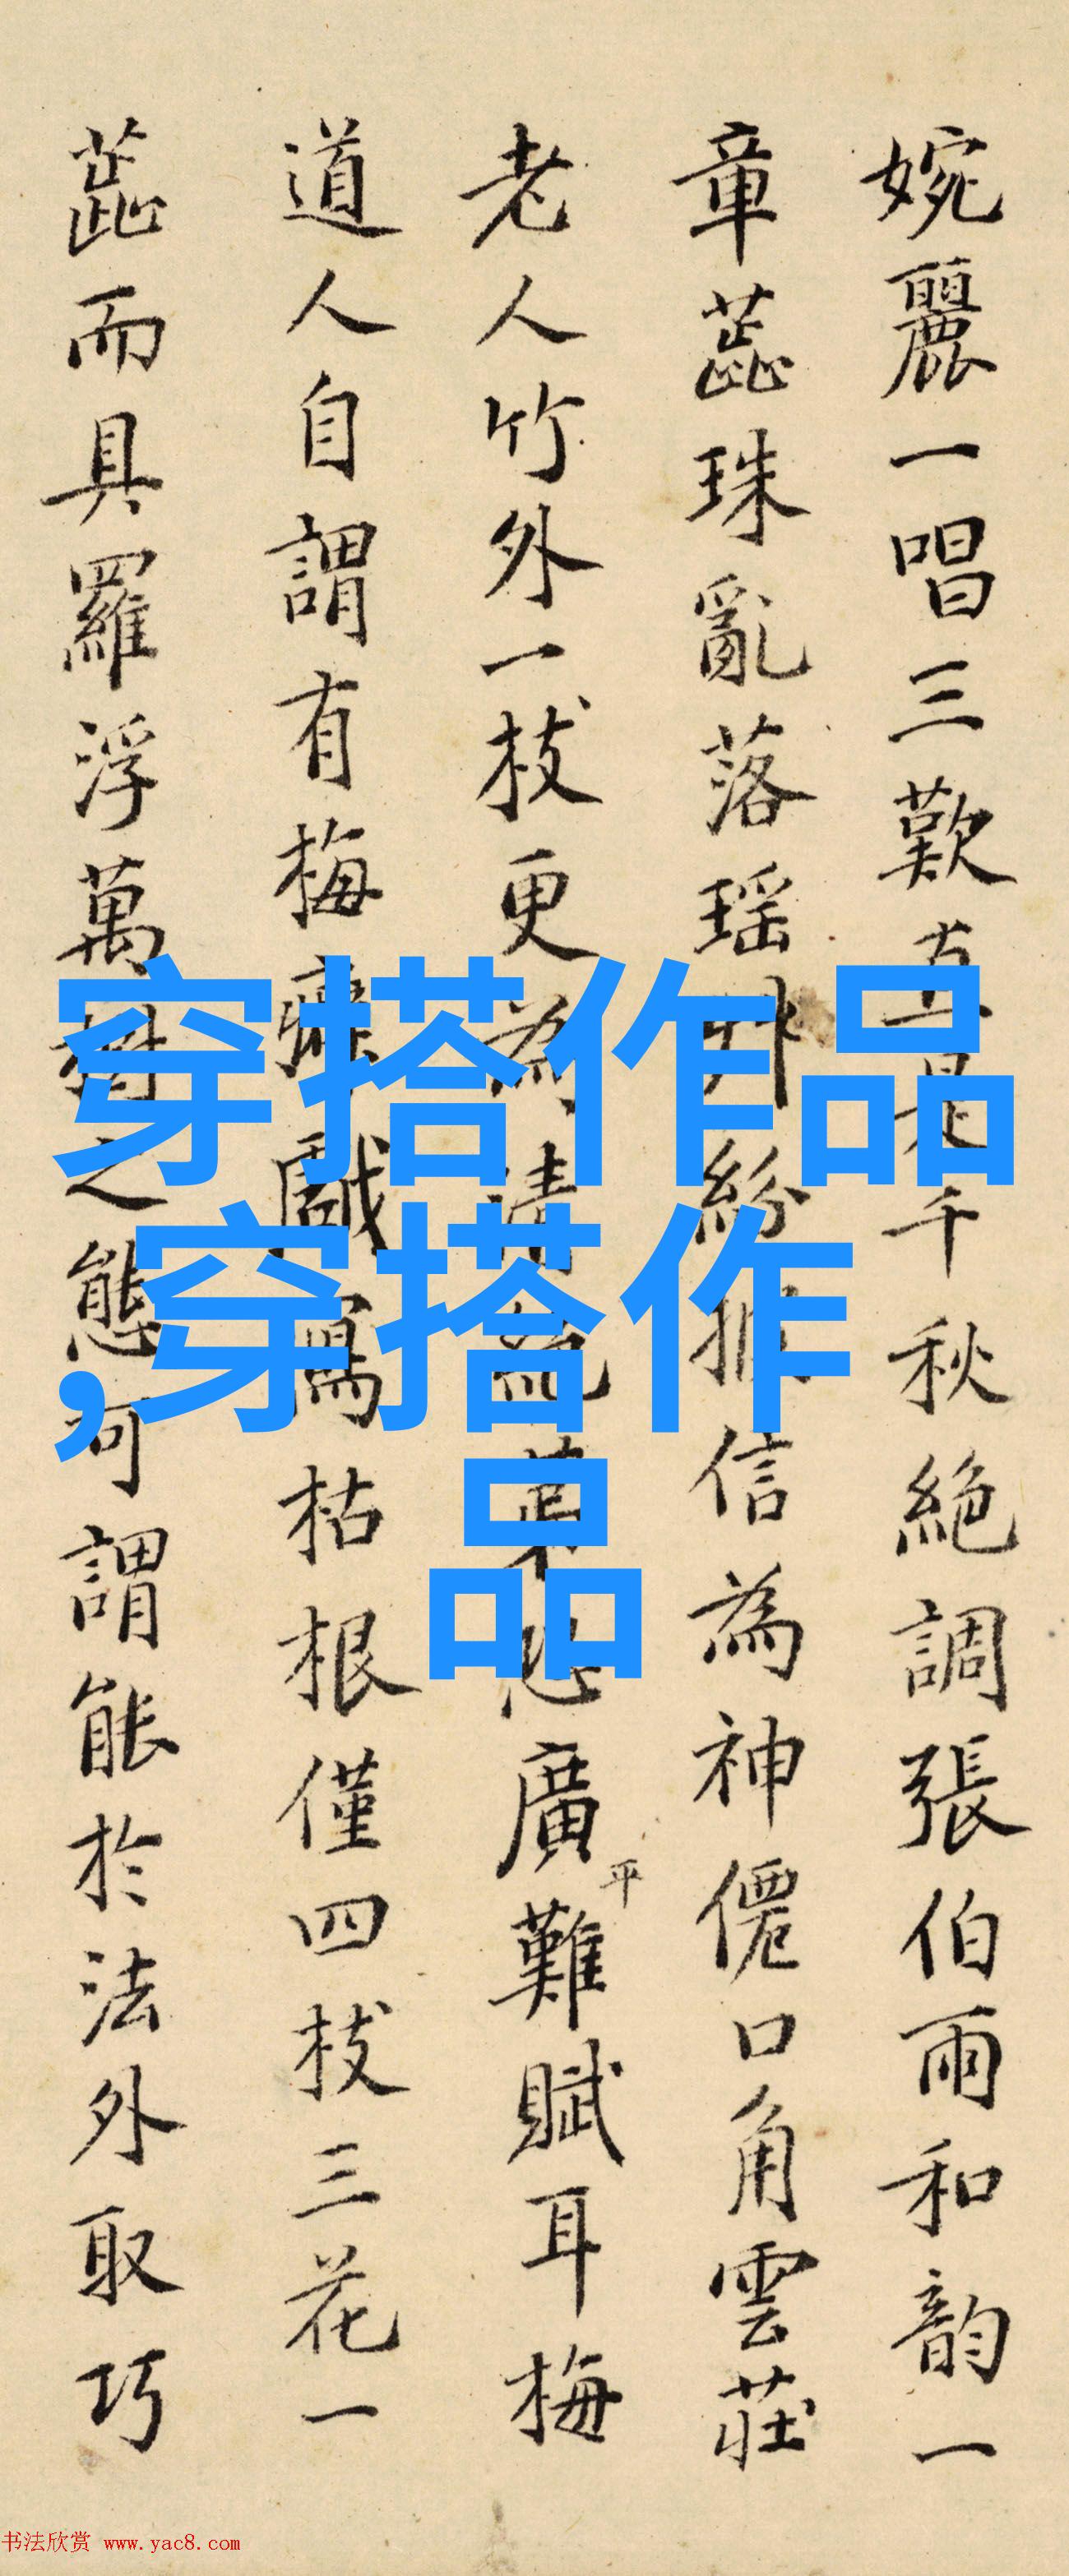 婉麗一唱三歎真是千秋絶調張伯雨和韵一
章蕋珠亂落瑶 紛 信為神僊口角雲莊
老人竹外一枝更為清絶 廣平難賦耳梅
道人自謂有梅癖戲寫枯根僅四枝三花一
蕋而具羅浮萬樹之態可謂能於法外取巧
穿搭作品
,穿搭作
品
书法欣赏 www.yac8.com